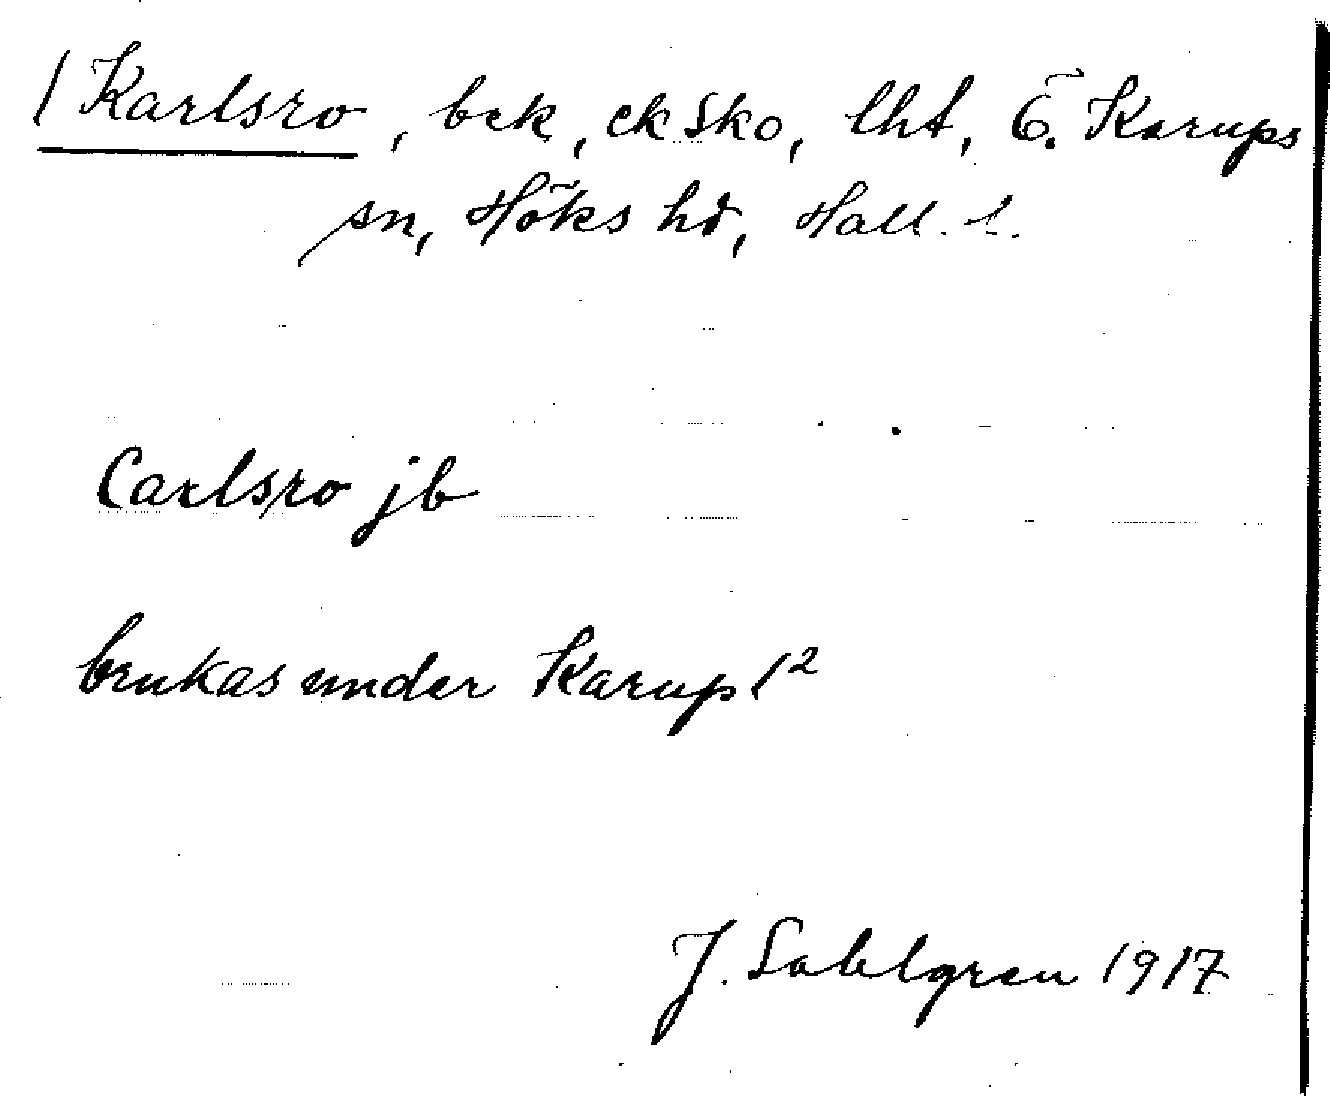 1 Karlsro, bek, ck sko, lht, Ö. Karups
sn, Höks hd, Hall. l.
Carlsro jb
brukas under Karup 1²
J. Sahlgren 1917